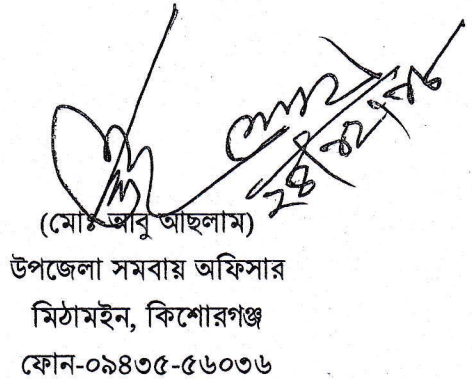 (মোঃ আবু আছলাম)
উপজেলা সমবায় অফিসার
মিঠামইন, কিশোরগঞ্জ
ফোন-০৯৪৩৫-৫৬০৩৬